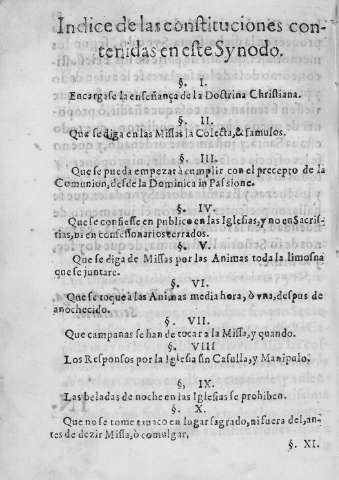 Indice de las constituciones con-
tenidas en este Synodo.
§. I.
Encargase la enseñança de la Doctrina Christiana.
§. II.
Que se diga en las Missas la Colecta, & famulos.
§. III.
Que se pueda empezar à cumplir con el precepto de la
Comunion, desde la Dominica in Passione.
§. IV.
Que se confiesse en publico en las Iglesias, y no en Sacris-
tias, ni en confessionarios cerrados.
§. V.
Que se diga de Missas por las Animas toda la limosna
que se juntare.
§. VI.
Que se toque à las Animas media hora, ò vna, despus de
anochecido.
§. VII.
Que campanas se han de tocar a la Missa, y quando.
§. VIII
Los Responsos por la Iglesia sin Casulla, y Manipulo.
§, IX.
Las beladas de noche en las Iglesias se prohiben.
§. X.
Que no se tome tauaco en lugar sagrado, ni fuera del, an-
tes de dezir Missa, ò comulgar,
§. XI.